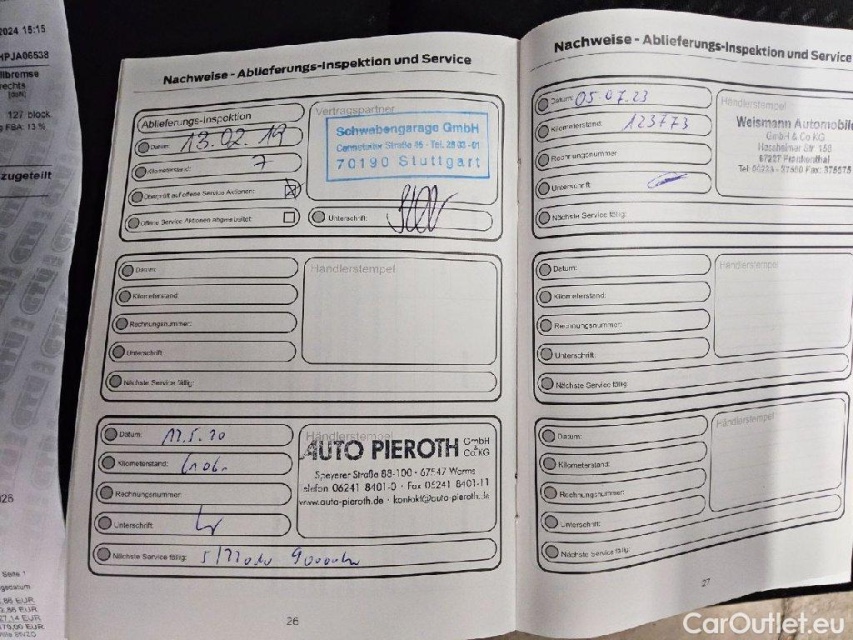 2024 15:15
HPJA06538
llbremse
rechts
[daN]
127 block.
FBA: 13 %
zugeteilt
Seite 1
Nachweise - Ablieferungs-Inspektion und Service
Ablieferungs-Inspektion
Datum: 13.02.19
Kilometerstand: 7
Überprüft auf offene Service Aktionen:
Offene Service Aktionen abgearbeitet:
Vertragspartner
Schwabengarage GmbH
70190 Stuttgart
Unterschrift:
Datum:
Kilometerstand:
Rechnungsnummer:
Unterschrift:
Nächste Service fällig:
Händlerstempel
Datum:
Kilometerstand:
Rechnungsnummer:
Unterschrift:
Nächste Service fällig: 5/22
Händlerstempel
AUTO PIEROTH GmbH & Co KG
Speyerer Straße 88-100 · 67547 Worms
Telefon 06241 8401-0 · Fax 06241 8401-11
www.auto-pieroth.de · kontakt@auto-pieroth.de
26
Nachweise - Ablieferungs-Inspektion und Service
Datum: 05.07.23
Kilometerstand: 123773
Rechnungsnummer:
Unterschrift:
Nächste Service fällig:
Händlerstempel
Weismann Automobile
GmbH & Co KG
67227 Frankenthal
Datum:
Kilometerstand:
Rechnungsnummer:
Unterschrift:
Nächste Service fällig:
Händlerstempel
Datum:
Kilometerstand:
Rechnungsnummer:
Unterschrift:
Nächste Service fällig:
Händlerstempel
27
CarOutlet.eu